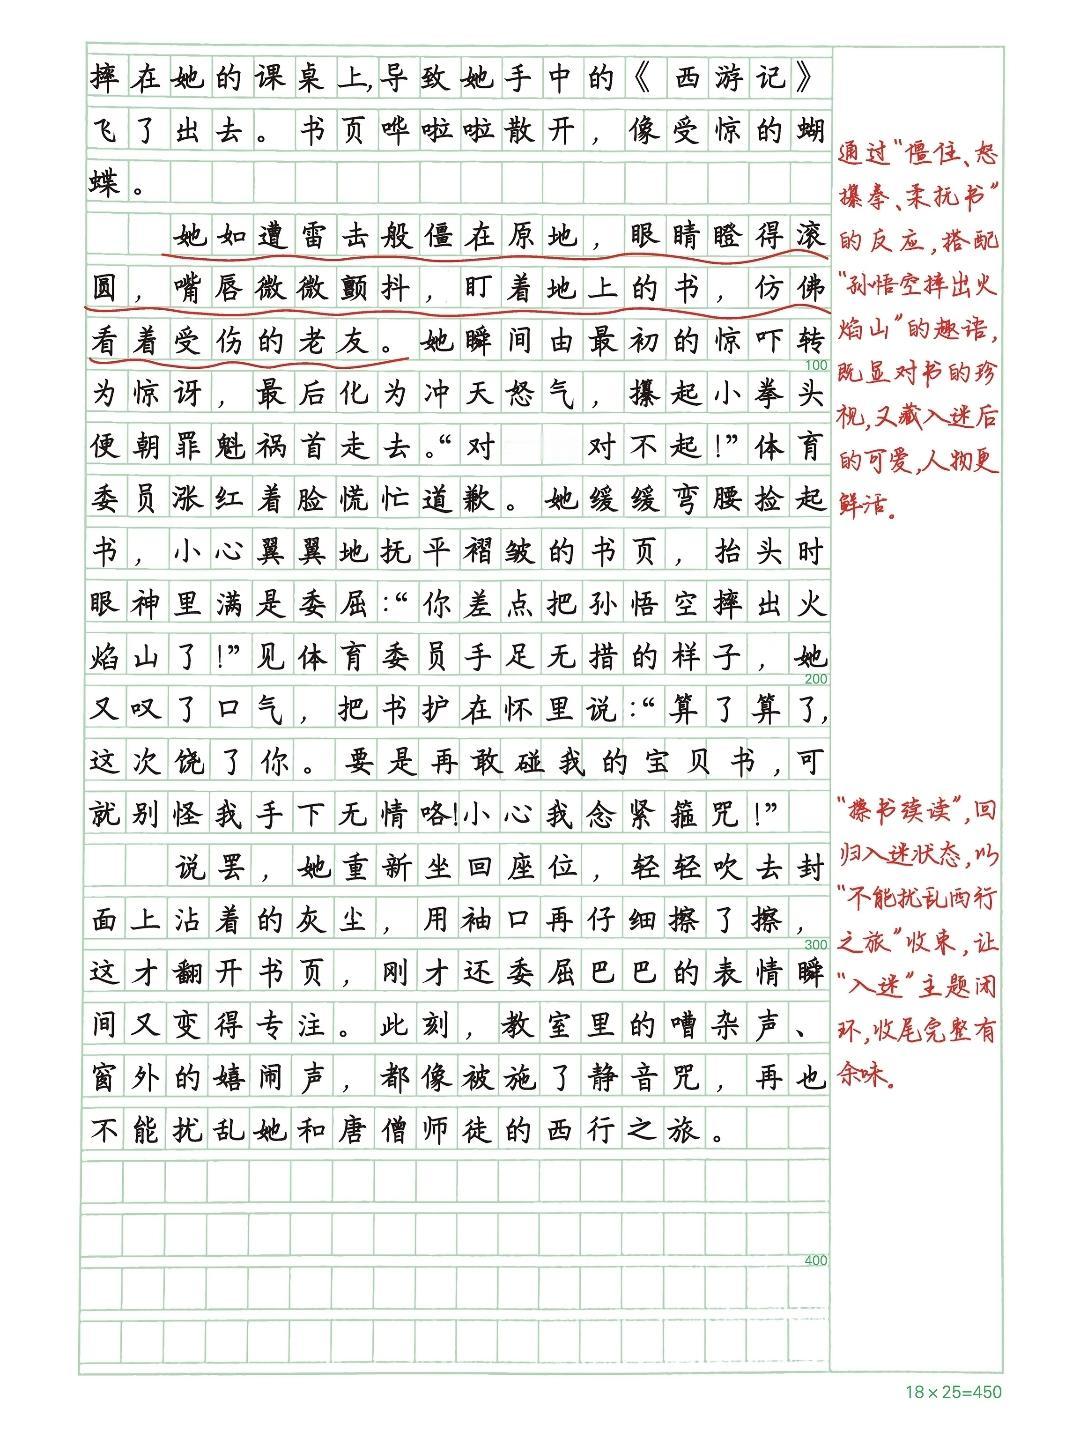 摔在她的课桌上,导致她手中的《西游记》
飞了出去。书页哗啦啦散开，像受惊的蝴
蝶。
她如遭雷击般僵在原地，眼睛瞪得滚
圆，嘴唇微微颤抖，盯着地上的书，仿佛
看着受伤的老友。她瞬间由最初的惊吓转
100
为惊讶，最后化为冲天怒气，攥起小拳头
便朝罪魁祸首走去。“对  对不起!”体育
委员涨红着脸慌忙道歉。她缓缓弯腰捡起
书，小心翼翼地抚平褶皱的书页，抬头时
眼神里满是委屈:“你差点把孙悟空摔出火
焰山了!”见体育委员手足无措的样子，她
200
又叹了口气，把书护在怀里说:“算了算了,
这次饶了你。要是再敢碰我的宝贝书,可
就别怪我手下无情咯!小心我念紧箍咒!”
说罢，她重新坐回座位，轻轻吹去封
面上沾着的灰尘，用袖口再仔细擦了擦，
300
这才翻开书页，刚才还委屈巴巴的表情瞬
间又变得专注。此刻，教室里的嘈杂声、
窗外的嬉闹声，都像被施了静音咒，再也
不能扰乱她和唐僧师徒的西行之旅。
400
18×25=450
通过“僵住、怒
攥拳、柔抚书”
的反应,搭配
“孙悟空摔出火
焰山”的趣语,
既显对书的珍
视,又藏入迷后
的可爱,人物更
鲜活。
“擦书续读”,回
归入迷状态,以
“不能扰乱西行
之旅”收束,让
“入迷”主题闭
环,收尾完整有
余味。